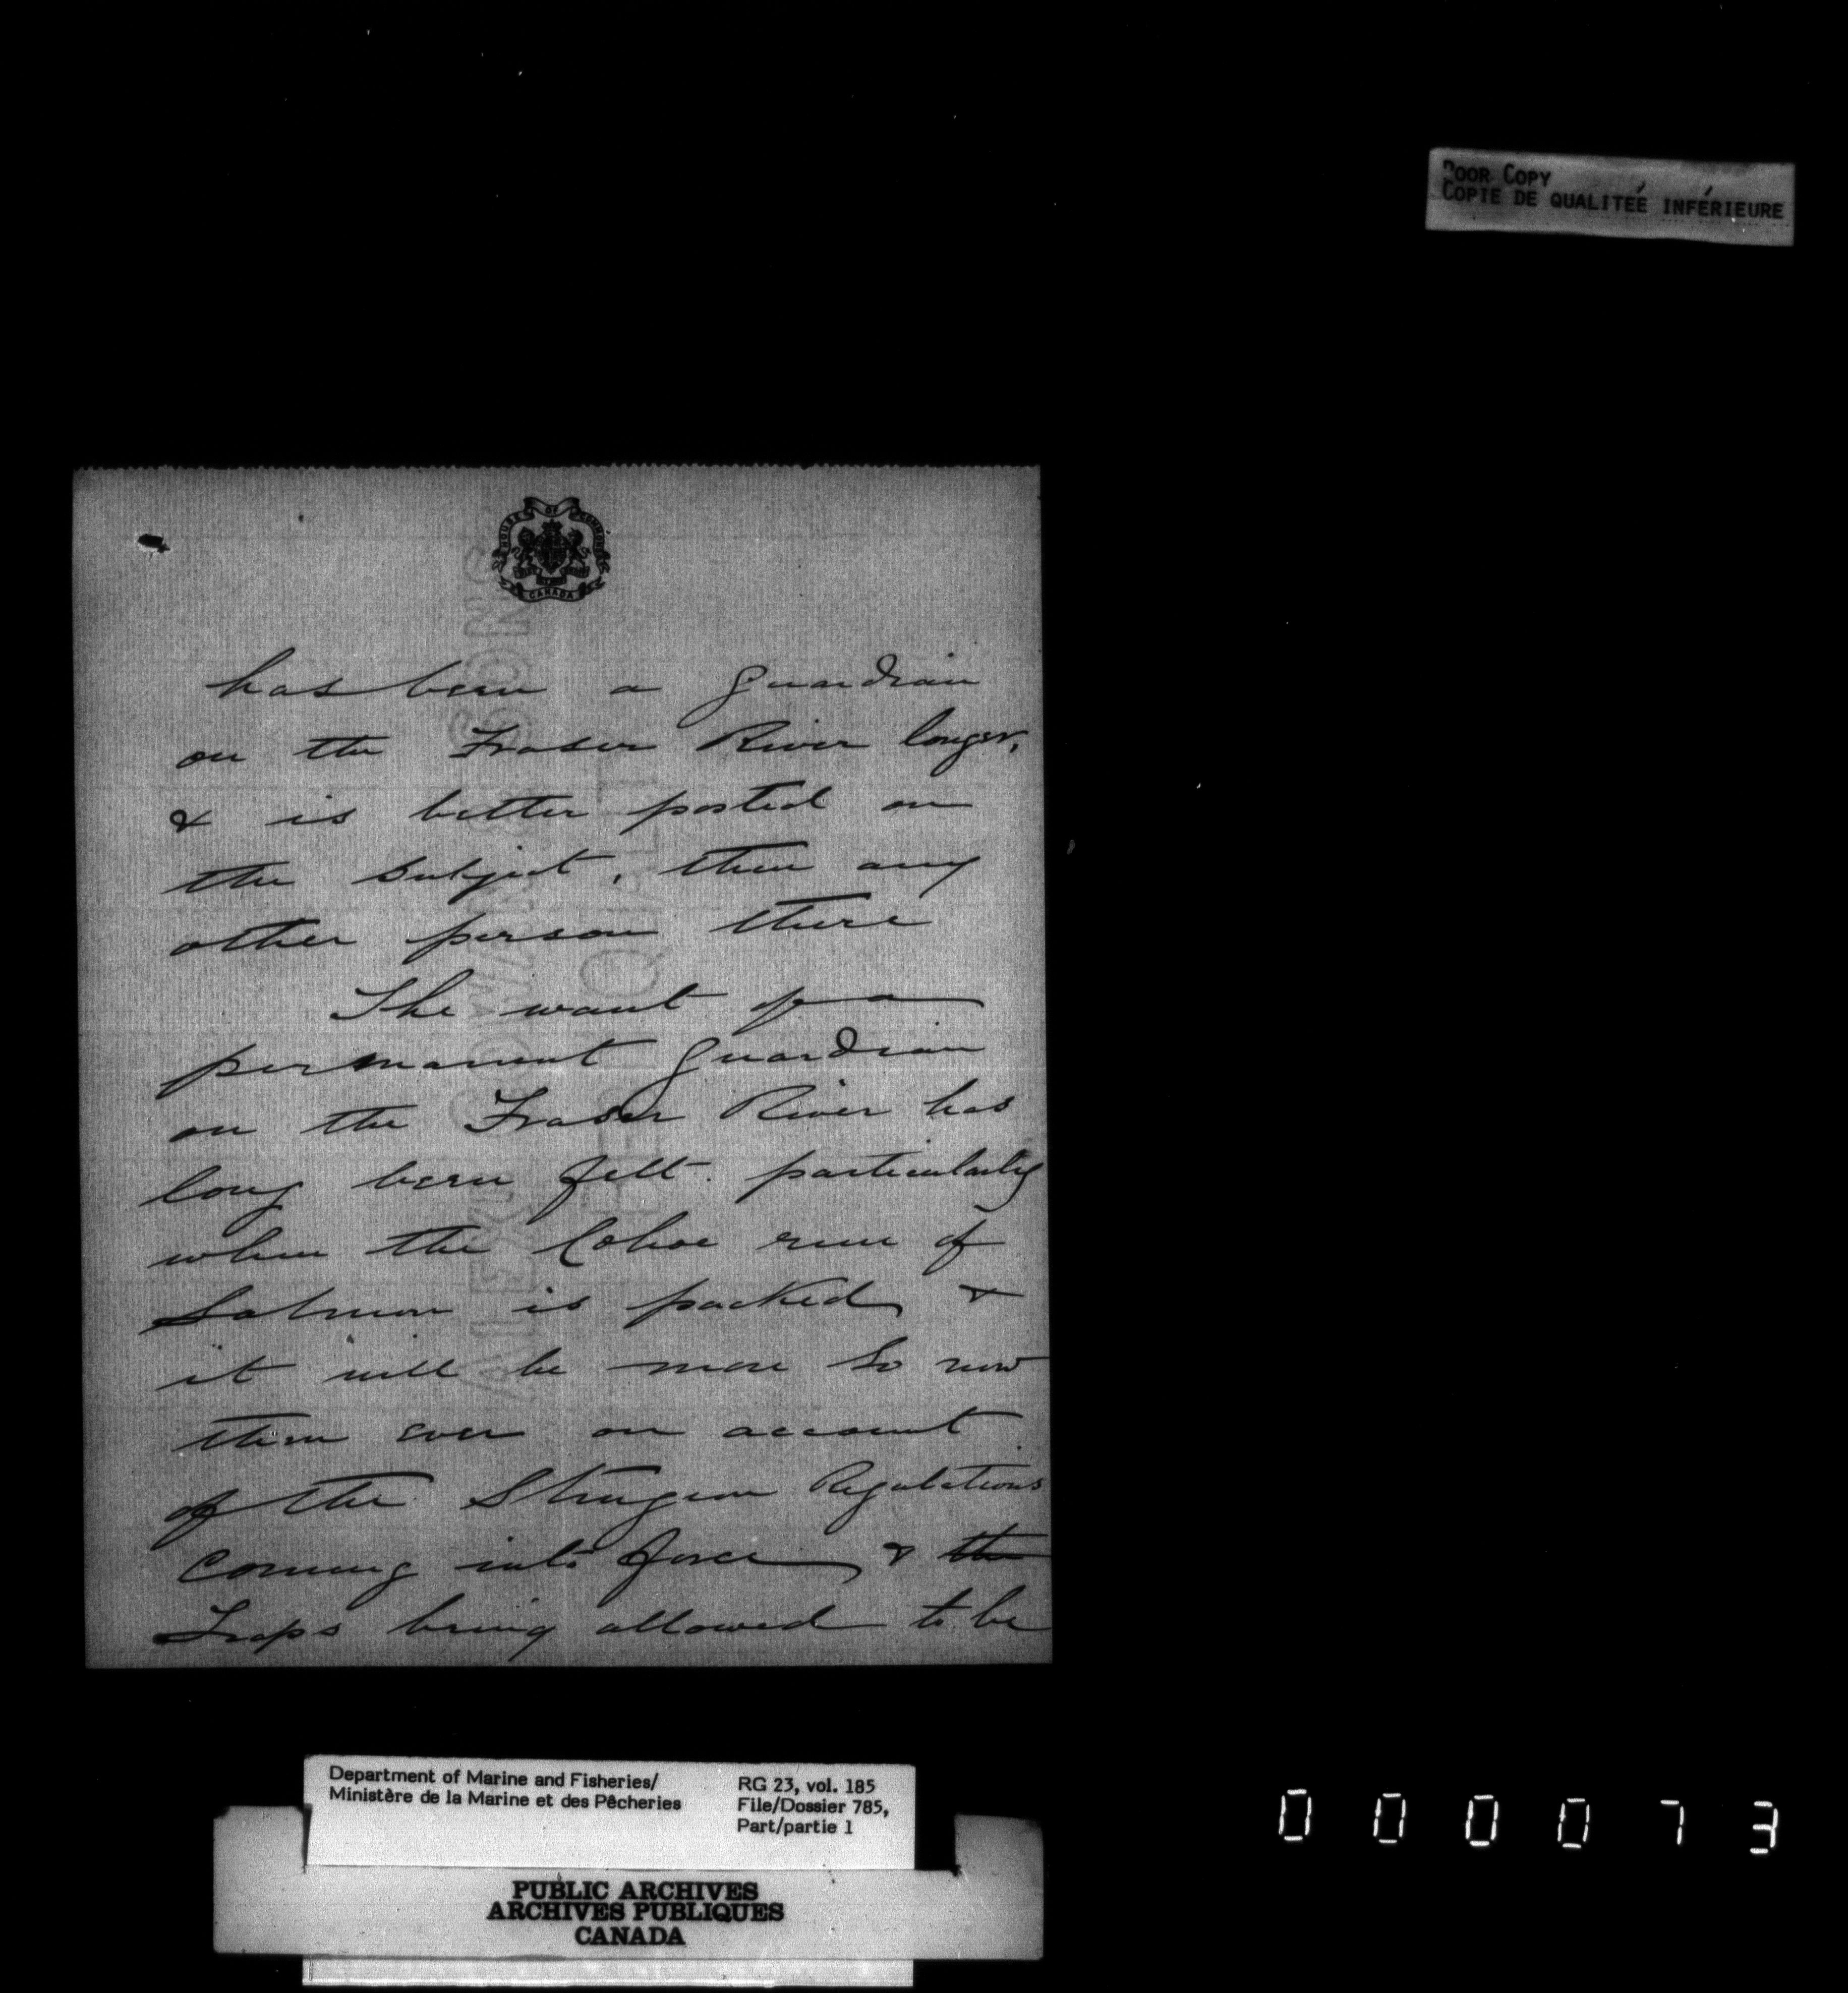 POOR COPY
COPIE DE QUALITEÉ INFÉRIEURE
HOUSE OF COMMONS
CANADA
has been a Guardian
on the Fraser River longer,
& is better posted on
the subject, then any
other person there
The want of a
permanent Guardian
on the Fraser River has
long been felt particularly
when the Cohoe run of
Salmon is packed &
it will be more so now
then ever on account
of the Sturgeon Regulations
coming into force & the
Traps being allowed to be
Department of Marine and Fisheries/
Ministère de la Marine et des Pêcheries
RG 23, vol. 185
File/Dossier 785,
Part/partie 1
PUBLIC ARCHIVES
ARCHIVES PUBLIQUES
CANADA
0 0 0 0 7 3